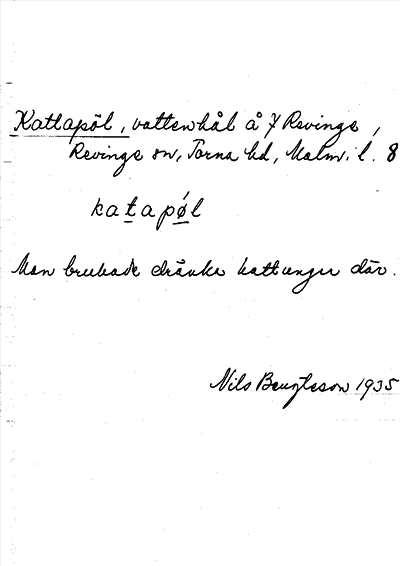 Kattapöl, vattenhål å 7 Revinge,
Revinge sn, Torna hd, Malm. l. 8
katapøl
Man brukade dränke kattungar där.
Nils Bengtsson 1935